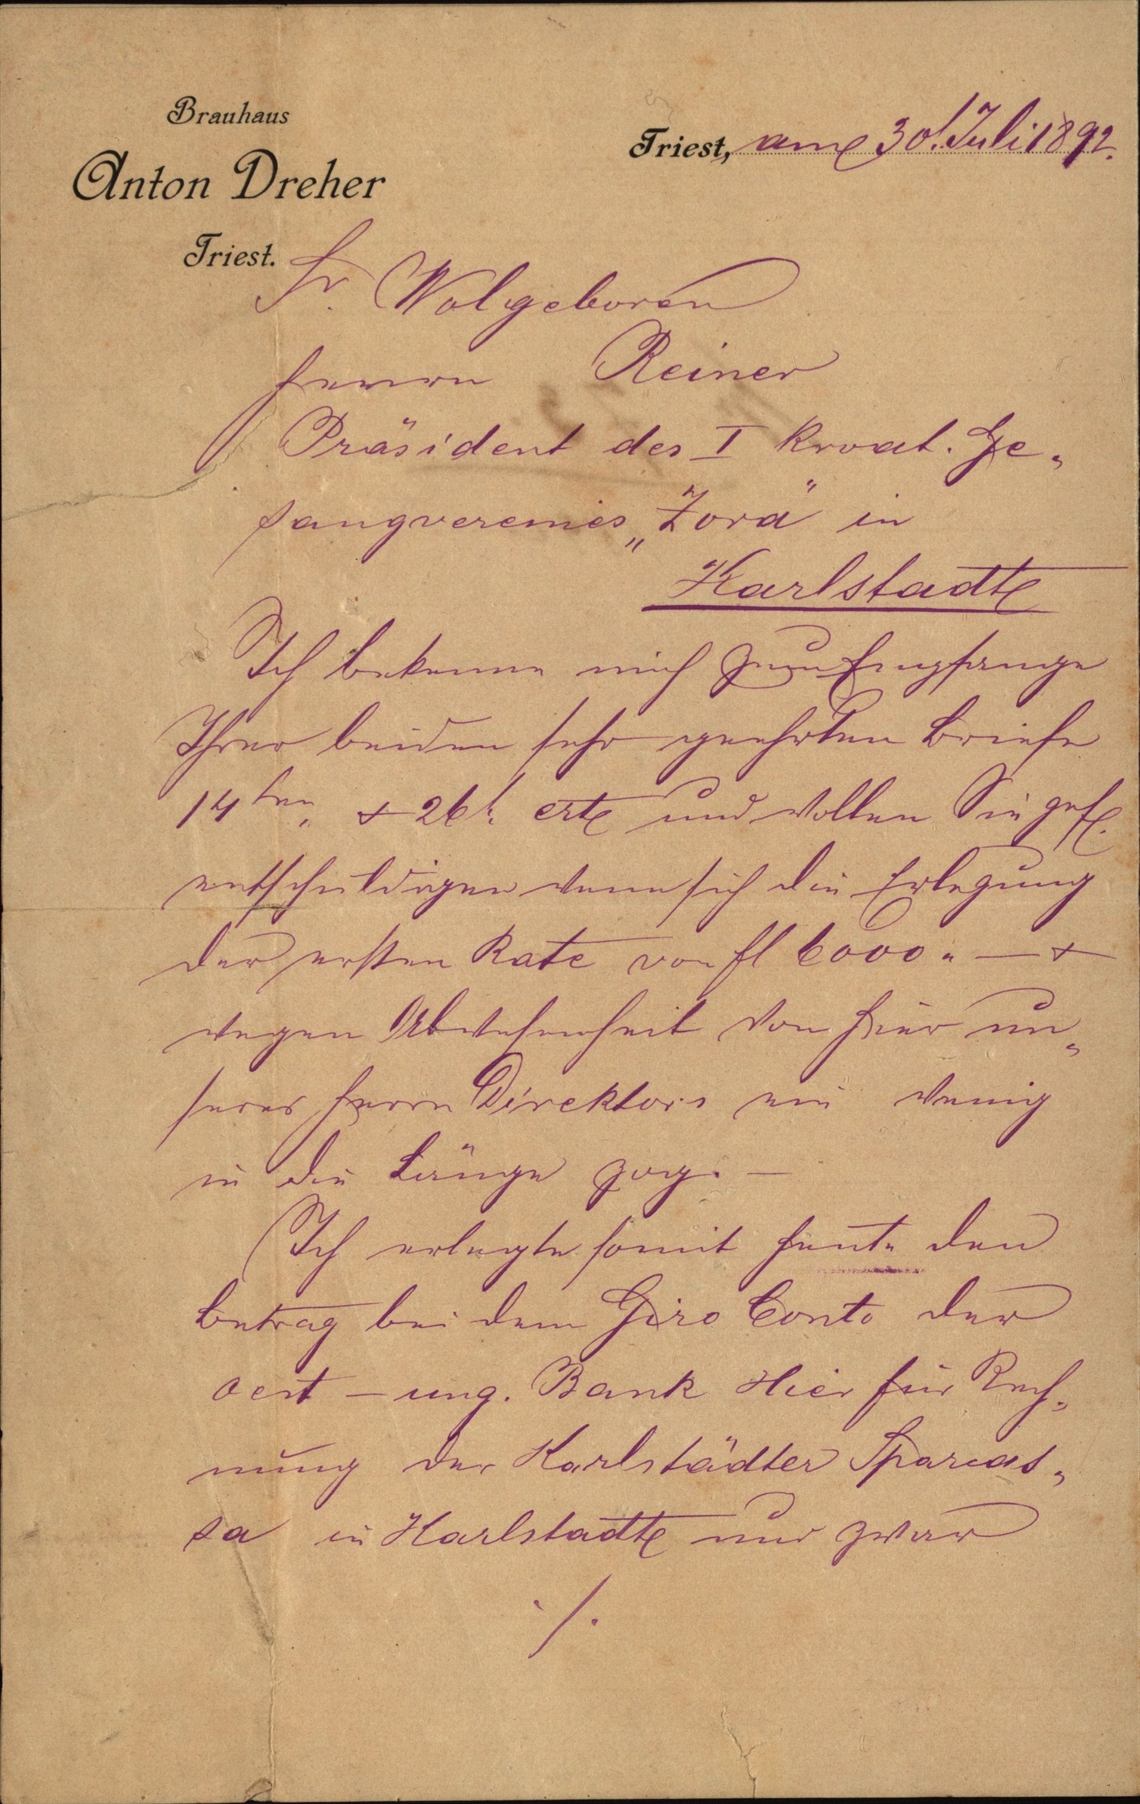 Brauhaus
Anton Dreher
Triest.
Triest, am 30t. Juli 1892.
Sr. Wolgeboren
Herrn Reiner
Präsident des I kroat. Ge„
sangvereines „Zora" in
Karlstadt
Ich bekenne mich zum Empfange
Ihrer beiden sehr geehrten Briefe
14ten & 26t. crt und wollen Sie gefl.
entschuldigen wenn sich die Erlegung
der ersten Rate von fl 6000.— x
wegen Abwesenheit von hier un„
seres Herrn Direktors ein wenig
in die Länge zog. —
Ich erlegte somit heute den
Betrag bei dem Giro Conto der
oest – ung. Bank Hier für Rech„
nung der Karlstädter Sparcas„
sa in Karlstadt und zwar
./.